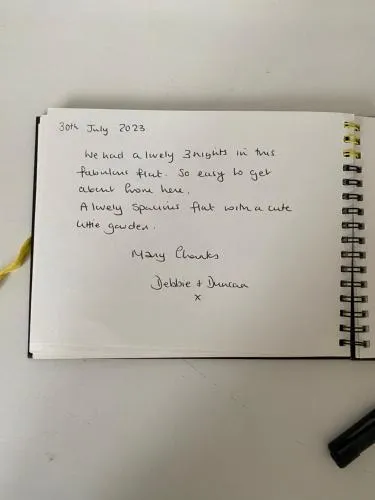 30th July 2023
We had a lovely 3 nights in this
fabulous flat. So easy to get
about from here.
A lovely spacious flat with a cute
little garden.
Many Thanks
Debbie + Duncan
x